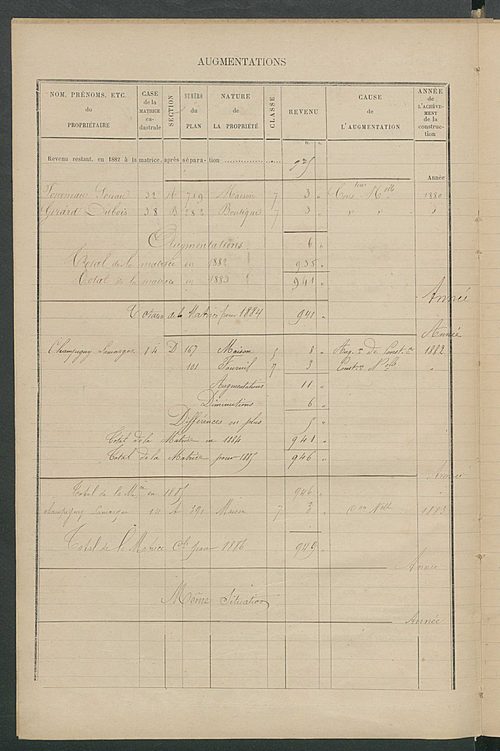 AUGMENTATIONS
NOM, PRÉNOMS, ETC. du PROPRIÉTAIRE
CASE de la MATRICE cadastrale
SECTION
NUMÉRO du PLAN
NATURE de LA PROPRIÉTÉ
CLASSE
REVENU
CAUSE de L'AUGMENTATION
ANNÉE de L'ACHÈVEMENT de la construction
Revenu restant, en 1882 à la matrice, après séparation
Année
32 719 Maison 7 3 Cons 1880
Girard Dubois 38 B 282 Boutique 7 3 " "
Augmentations 6
Total de la matrice en 1882 935
Total de la matrice en 1883 941
Année
de la Matrice pour 1884 941
Année
Champigny Lemarger 14 D 167 Maison 5 8 Aug.on De Const.on 1882
101 Fournil 7 3 Constr.on Nelle "
Augmentations 11
Diminutions 6
Différences en plus 5
Total de la Matrice en 1884 941
Total de la Matrice pour 1885 946
Année
Total de la M.ce en 1885 946
Champigny Lemarger 14 A 391 Maison 7 3 Con Nelle 1883
Total de la Matrice pour 1886 949
Année
Même Situation
Année